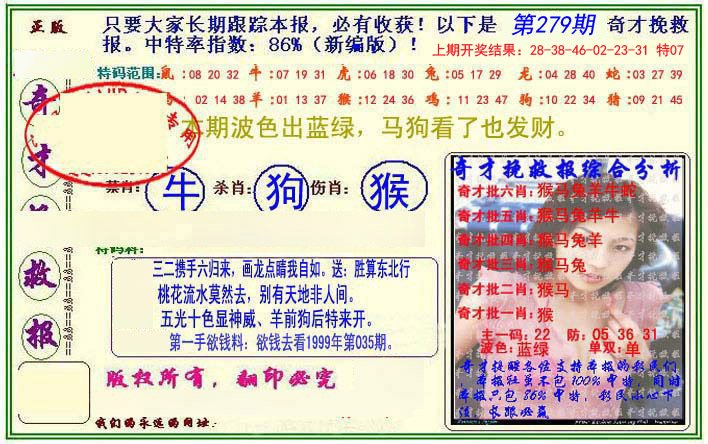 正版
只要大家长期跟踪本报，必有收获！以下是 第279期 奇才挽救
报。中特率指数：86%（新编版）！ 上期开奖结果：28-38-46-02-23-31 特07
特码范围：鼠：08 20 32 牛：07 19 31 虎：06 18 30 兔：05 17 29 龙：04 28 40 蛇：03 27 39
02 14 38 羊：01 13 37 猴：12 24 36 鸡：11 23 47 狗：10 22 34 猪：09 21 45
本期波色出蓝绿，马狗看了也发财。
奇
才
救
报
禁肖：牛 杀肖：狗 伤肖：猴
特码料：
三二携手六归来，画龙点睛我自如。送：胜算东北行
桃花流水莫然去，别有天地非人间。
五光十色显神威、羊前狗后特来开。
第一手欲钱料：欲钱去看1999年第035期。
版权所有，翻印必究
我们的永远的网址：
奇才挽救报综合分析
奇才批六肖：猴马兔羊牛蛇
奇才批五肖：猴马兔羊牛
奇才批四肖：猴马兔羊
奇才批三肖：猴马兔
奇才批二肖：猴马
奇才批一肖：猴
主一码：22 防：05 36 31
波色：蓝绿 单双：单
奇才挽救各位支持本报的彩民们
，本报虽不包100%中特，同时
本报只包86%中特，彩民小心下
注，长跟必赢